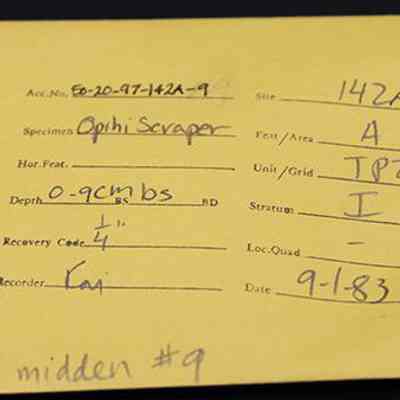 Acc.No. 50-20-97-142A-9 Site 142A
Specimen Opihi Scraper Feat/Area A
Hor.Feat. Unit/Grid TP2
Depth 0-9cmbs BS BD Stratum I
Recovery Code 1/4" Loc.Quad -
Recorder Kai Date 9-1-83
midden #9